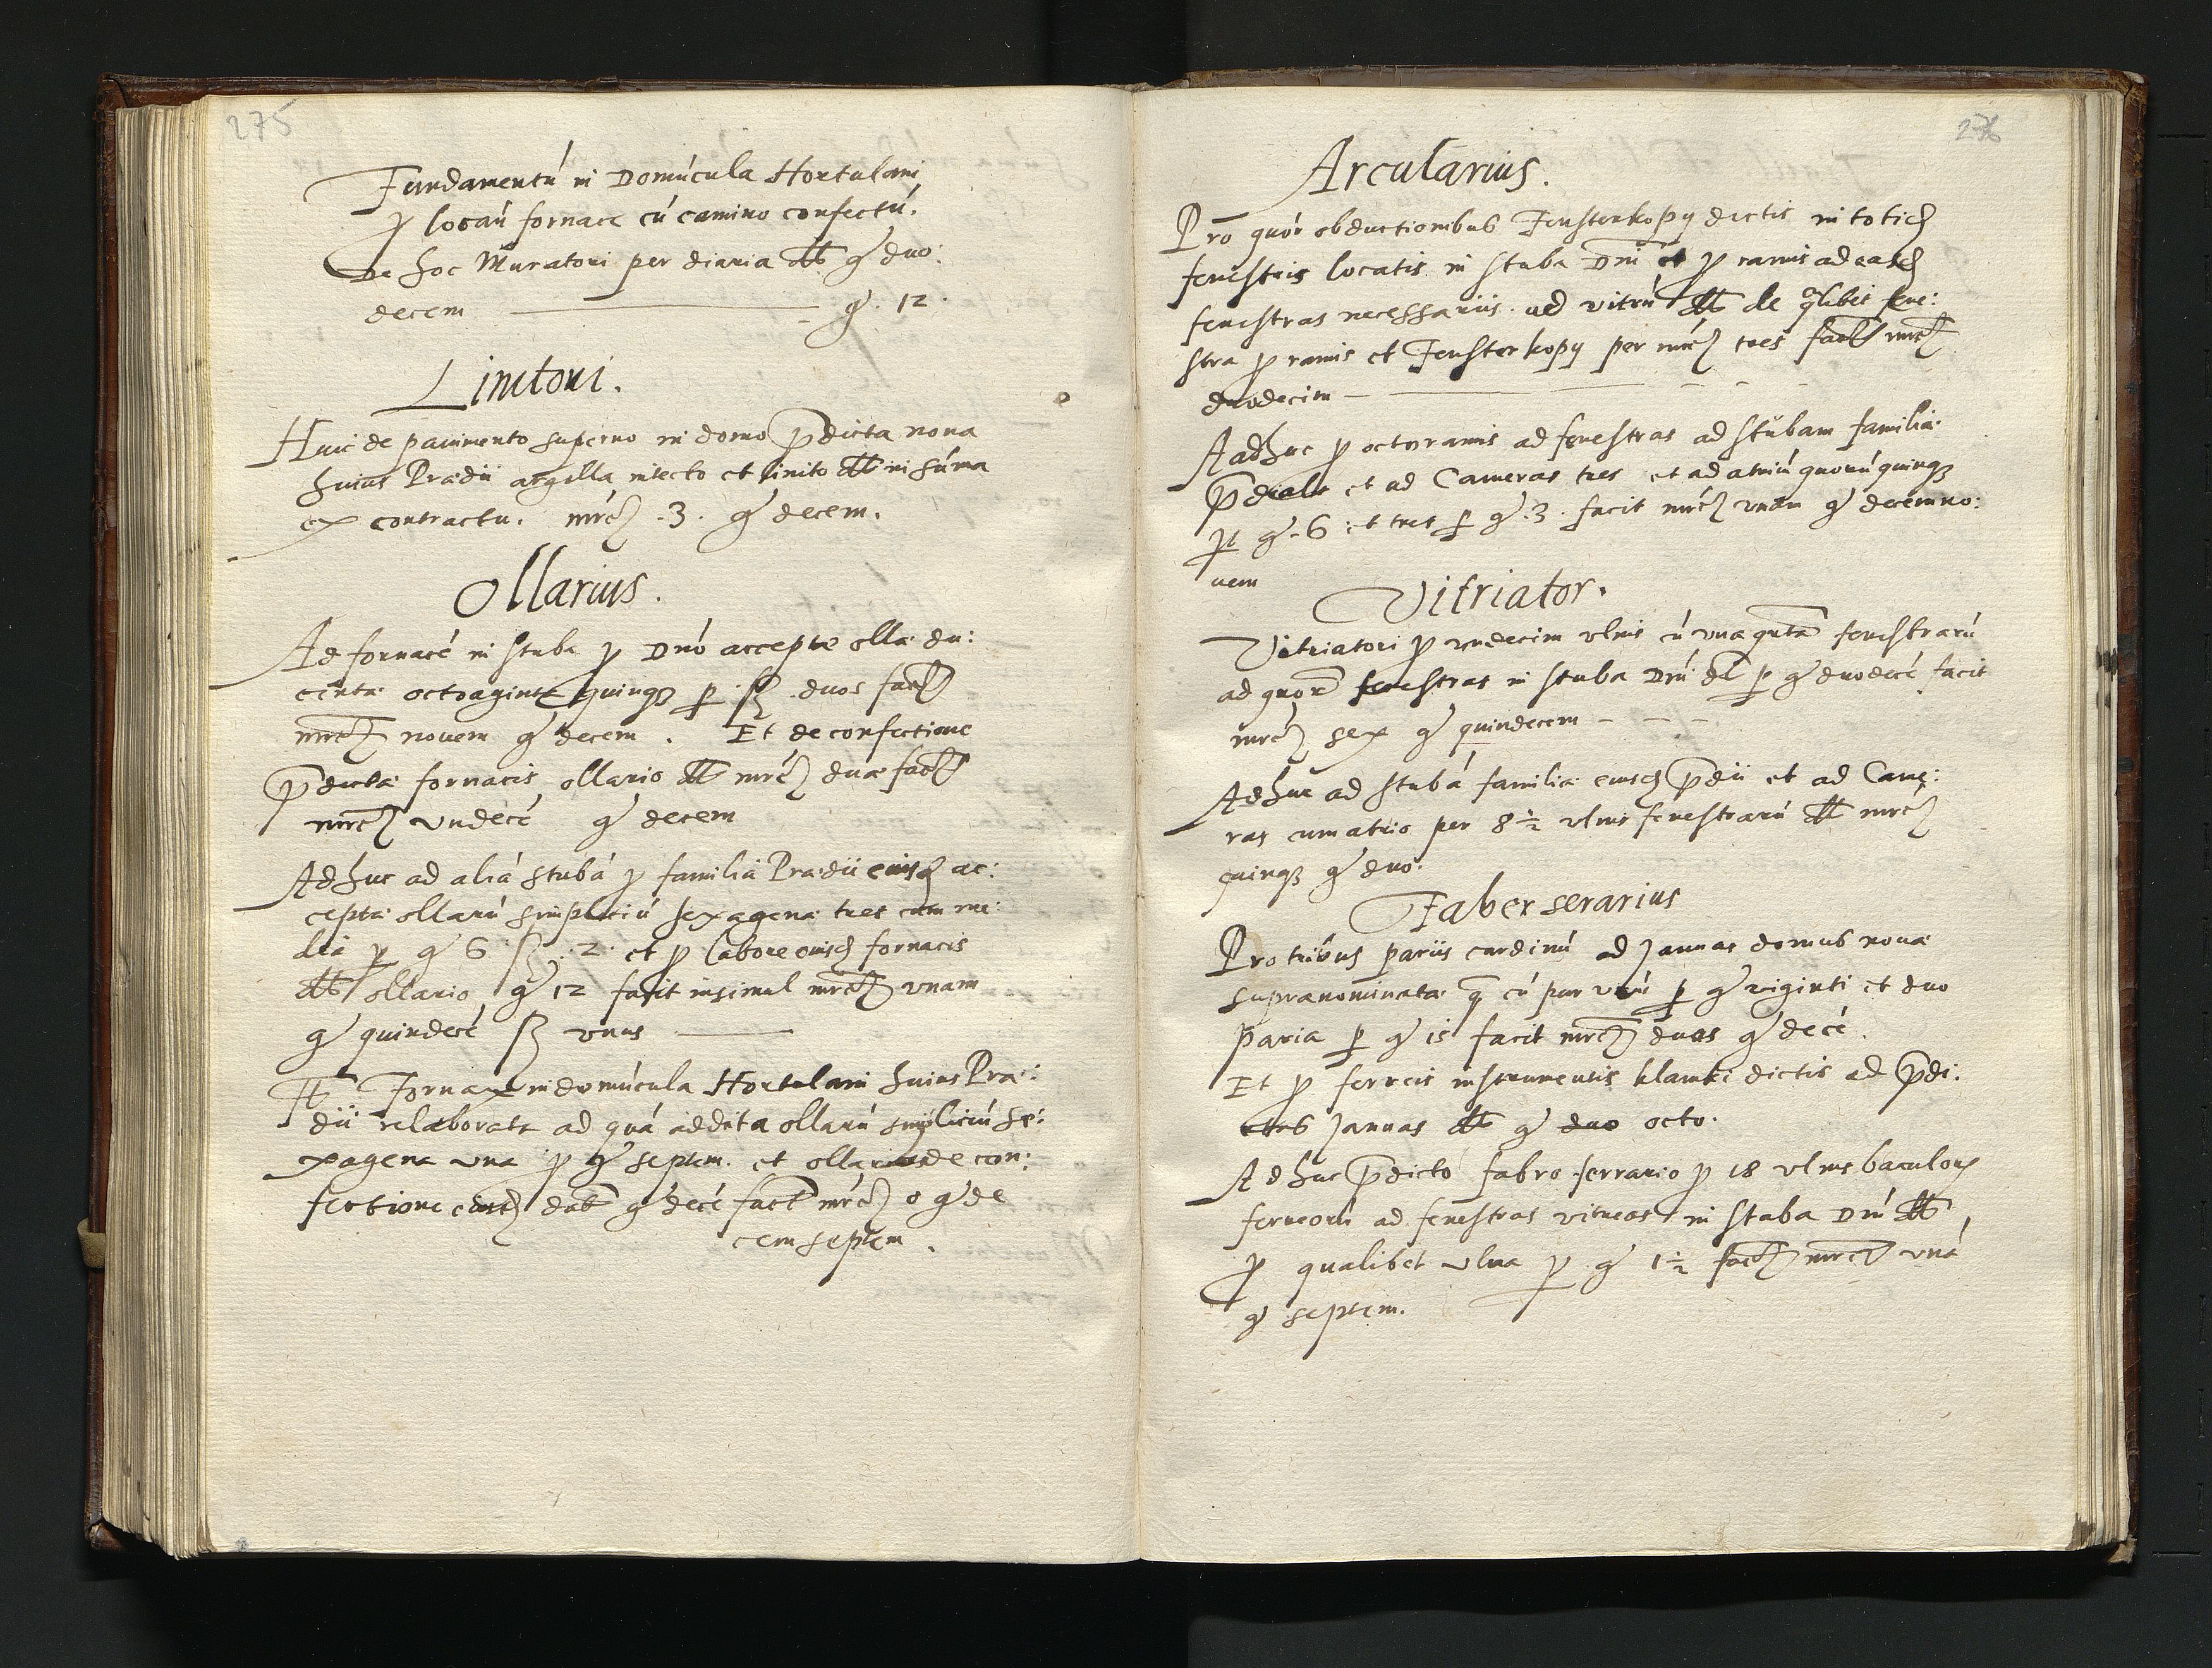 275
Fundamentū in Domúcula Hortulani
p locaū fornace cū camino confectú.
De hoc Muratori per diaria dtt gͬ duo:
decem ——— gͬ. 12.
Linitori.
Huic de pauimento superno in domo p̄dicta noua
huius Prædii argilla intecto et linito dtt in súma
ex contractu. mrč .3. gͬ decem.
Ollarius.
Ad fornacé in stuba p Dnó acceptæ ollæ du:
centæ octoaginta quinqȝ p ſȝ duos fact
mrč nouem gͬ decem. Et de confectione
p̄dictæ fornacis ollario dtt mrč duæ fact
mrč vndecé gͬ decem
Adhuc ad aliá stubá p familia Prædii eiusd ac:
ceptæ ollarú simpliciú sexagenæ tres cum me:
dia p gͬ 6 ſȝ .2. et p labore eiusd fornacis
dtt ollario gͬ 12 facit insimul mrč vnam
gͬ quindecé ſȝ vnus ———
It Fornax in domúcula Hortulani huius Præ:
dii relaborata ad quá addita ollarú simpliciú se:
xagena una p gͬ septem. et ollario de con:
fectione eiusd dat gͬ decé fact mrč 0 gͬ de
cem septem.
276
Arcularius.
Pro quór obductionibus Fensterkopy dictis in totid
fenestris locatis in stuba Dni et p ramis ad easd
fenestras necessariis ad vitrú dtt de qlibet fene:
stra p ramis et Fensterkopy per mrč tres fact mrč
duodecim — ——— - - -
Aadhuc p octo ramis ad fenestras ad stubam familiæ
p̄dialis et ad Cameras tres et ad atriú quorú quinqȝ
p gͬ .6 et tres p gͬ .3. facit mrč vnam gͬ decemno:
uem
Vitriator.
Vitriatori p vndecim vlnis cú vna qrta fenestrarú
ad quor fenestras in stuba Dní dt p gͬ duodecé facit
mrč sex gͬ quindecem - - -
Adhuc ad stubá familiæ eiusd p̄dii et ad Came:
ras cum atrio per 8½ vlnis fenestrarú dtt mrč
quinqȝ gͬ duo.
Faber serarius
Pro tribus pariis cardinú ad Januas domus nouæ
supranominatæ q cú par vnú p gͬ viginti et duo
paria p gͬ 15 facit mrč duas gͬ decé.
Et p ferreis instrumentis klamki dictis ad p̄di:
ctas Januas dtt gͬ duo octo.
Adhuc p̄dicto fabro ferrario p 18 vlnis baculor
ferreorú ad fenestras vitreas in stuba Dní dtt
p qualibet vlna p gͬ 1½ fact mrč vná
gͬ septem.